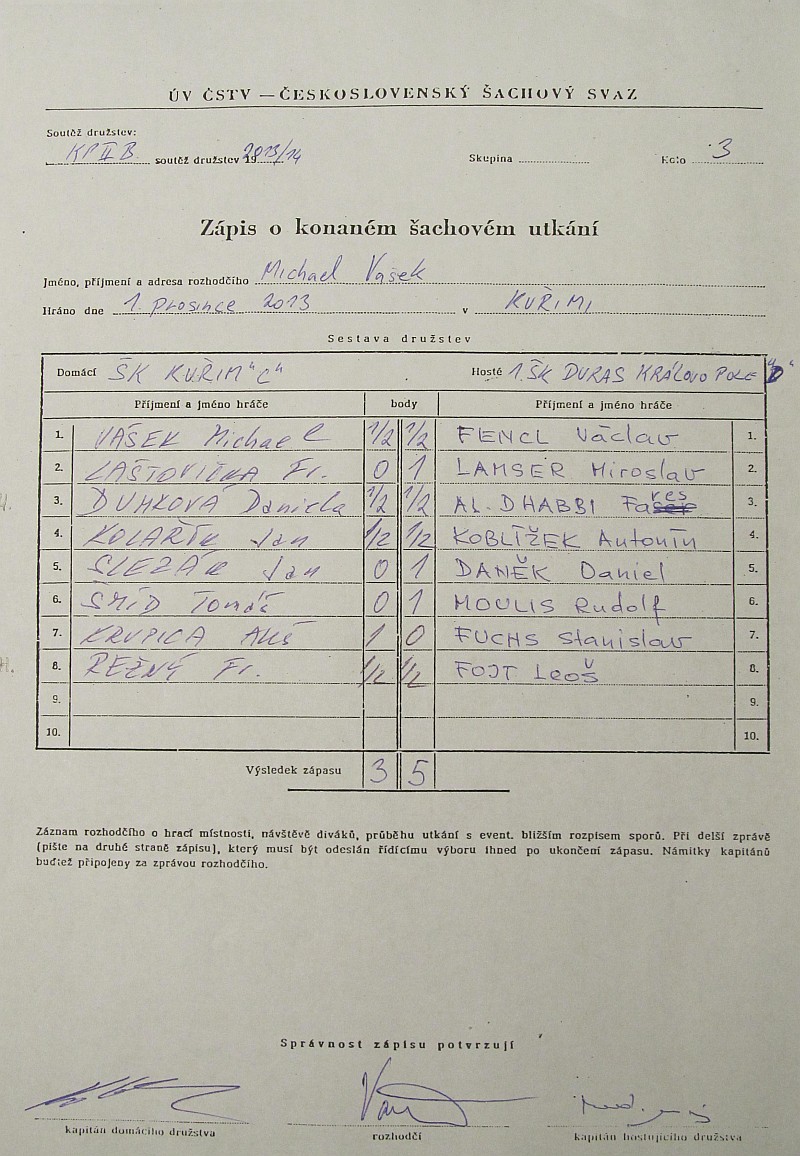 ÚV ČSTV — ČESKOSLOVENSKÝ ŠACHOVÝ SVAZ
Soutěž družstev:
KPIIB soutěž družstev 2013/14 Skupina Kolo 3
Zápis o konaném šachovém utkání
Jméno, příjmení a adresa rozhodčího Michael Vašek
Hráno dne 1. prosince 2013 v KUŘIMI
Sestava družstev
Domácí ŠK KUŘIM "C" Hosté 1. ŠK DURAS KRÁLOVO POLE "D"
Příjmení a jméno hráče body Příjmení a jméno hráče
1. VAŠEK Michael 1/2 1/2 FENCL Václav 1.
2. LAŠTOVIČKA Fr. 0 1 LAMSER Miroslav 2.
3. DUMKOVÁ Daniela 1/2 1/2 AL-DHABBI Fares 3.
4. Jan 1/2 1/2 KOBLÍŽEK Antonín 4.
5. SLEZÁK Jan 0 1 DANĚK Daniel 5.
6. SMÍD Tomáš 0 1 MOULIS Rudolf 6.
7. KRUPICA Aleš 1 0 FUCHS Stanislav 7.
8. ŘEŽNÝ Fr. 1/2 1/2 FOJT Leoš 8.
9. 9.
10. 10.
Výsledek zápasu 3 5
Záznam rozhodčího o hrací místnosti, návštěvě diváků, průběhu utkání s event. bližším rozpisem sporů. Při delší zprávě
(pište na druhé straně zápisu), který musí být odeslán řídícímu výboru ihned po ukončení zápasu. Námitky kapitánů
buďtež připojeny za zprávou rozhodčího.
Správnost zápisu potvrzují
kapitán domácího družstva rozhodčí kapitán hostujícího družstva